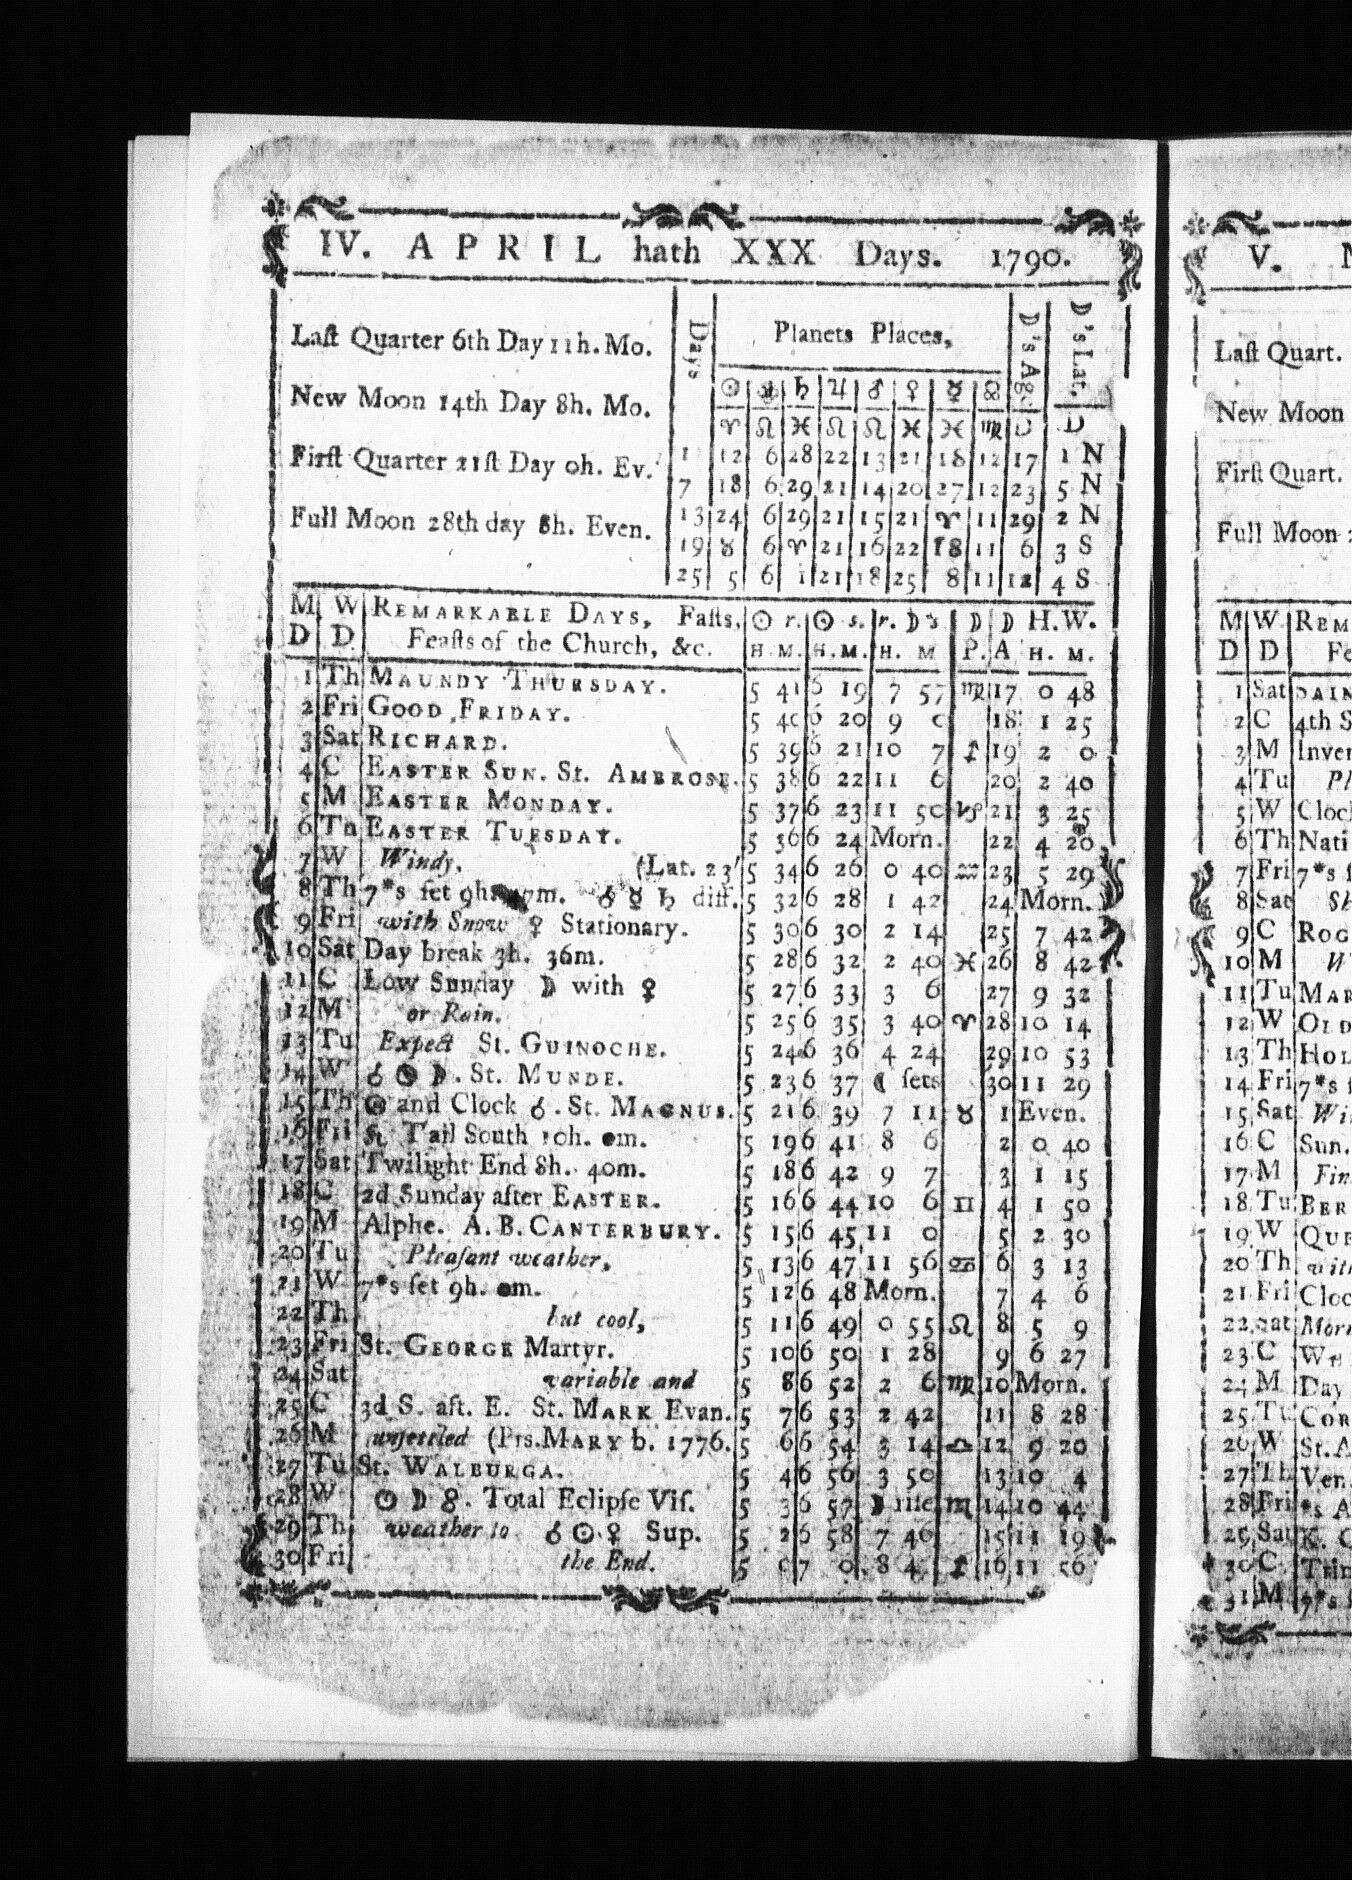 IV. APRIL hath XXX Days. 1790.
Laſt Quarter 6th Day 11h. Mo.
New Moon 14th Day 8h. Mo.
Firſt Quarter 21ſt Day 0h. Ev.
Full Moon 28th day 8h. Even.
Days Planets Places, ☽'s Age ☽'s Lat.
☉ ♅ ♄ ♃ ♂ ♀ ☿ ☊
♈ ♌ ♓ ♌ ♌ ♓ ♓ ♍ D D
1 12 6 28 22 13 21 18 12 17 1 N
7 18 6 29 21 14 20 27 12 23 5 N
13 24 6 29 21 15 21 ♈ 11 29 2 N
19 ♉ 6 ♈ 21 16 22 18 11 6 3 S
25 5 6 1 21 18 25 8 11 12 4 S
M W REMARKABLE DAYS, Faſts, ☉ r. ☉ s. r. ☽'s ☽ ☽ H. W.
D D Feaſts of the Church, &c. H. M. H. M. H. M P. A H. M.
1 Th MAUNDY THURSDAY. 5 41 6 19 7 57 ♍ 17 0 48
2 Fri GOOD FRIDAY. 5 40 6 20 9 0 18 1 25
3 Sat RICHARD. 5 39 6 21 10 7 ♐ 19 2 0
4 C EASTER SUN. St. AMBROSE. 5 38 6 22 11 6 20 2 40
5 M EASTER MONDAY. 5 37 6 23 11 50 ♑ 21 3 25
6 Tu EASTER TUESDAY. 5 36 6 24 Morn. 22 4 20
7 W Windy, (Lat. 23' 5 34 6 26 0 40 ♒ 23 5 29
8 Th 7*s ſet 9h. 47m. ☌ ☿ ♄ diff. 5 32 6 28 1 42 24 Morn.
9 Fri with Snow ♀ Stationary. 5 30 6 30 2 14 25 7 42
10 Sat Day break 3h. 36m. 5 28 6 32 2 40 ♓ 26 8 42
11 C Low Sunday ☽ with ♀ 5 27 6 33 3 6 27 9 32
12 M or Rain. 5 25 6 35 3 40 ♈ 28 10 14
13 Tu Expect St. GUINOCHE. 5 24 6 36 4 24 29 10 53
14 W ☌ ☉ ☽. St. MUNDE. 5 23 6 37 ☾ ſets 30 11 29
15 Th ☉ and Clock ☌. St. MAGNUS. 5 21 6 39 7 11 ♉ 1 Even.
16 Fri ♌ Tail South 10h. 0m. 5 19 6 41 8 6 2 0 40
17 Sat Twilight End 8h. 40m. 5 18 6 42 9 7 3 1 15
18 C 2d Sunday after EASTER. 5 16 6 44 10 6 ♊ 4 1 50
19 M Alphe. A. B. CANTERBURY. 5 15 6 45 11 0 5 2 30
20 Tu Pleaſant weather, 5 13 6 47 11 56 ♋ 6 3 13
21 W 7*s ſet 9h. 0m. 5 12 6 48 Morn. 7 4 6
22 Th but cool, 5 11 6 49 0 55 ♌ 8 5 9
23 Fri St. GEORGE Martyr. 5 10 6 50 1 28 9 6 27
24 Sat variable and 5 8 6 52 2 6 ♍ 10 Morn.
25 C 3d S. aft. E. St. MARK Evan. 5 7 6 53 2 42 11 8 28
26 M unſettled (Prs. MARY b. 1776. 5 6 6 54 3 14 ♎ 12 9 20
27 Tu St. WALBURGA. 5 4 6 56 3 50 13 10 4
28 W ☉ ☽ ☍. Total Eclipſe Viſ. 5 3 6 57 ☽ riſe ♏ 14 10 44
29 Th weather to ☌ ☉ ♀ Sup. 5 2 6 58 7 40 15 11 19
30 Fri the End. 5 0 7 0 8 4 ♐ 16 11 56
V.
Laſt Quart.
New Moon
Firſt Quart.
Full Moon
M W REM
D D Fe
1 Sat
2 C 4th S
3 M Inver
4 Tu Pl
5 W Cloc
6 Th Nati
7 Fri 7*s ſ
8 Sat Sh
9 C ROG
10 M W
11 Tu MAR
12 W OLD
13 Th HOL
14 Fri 7*s ſ
15 Sat Wi
16 C Sun.
17 M Fin
18 Tu BER
19 W QUE
20 Th with
21 Fri Cloc
22 Sat Morn
23 C WH
24 M Day
25 Tu COR
26 W St. A
27 Th Ven.
28 Fri *s A
29 Sat K. C
30 C Trin
31 M 7*s ſ